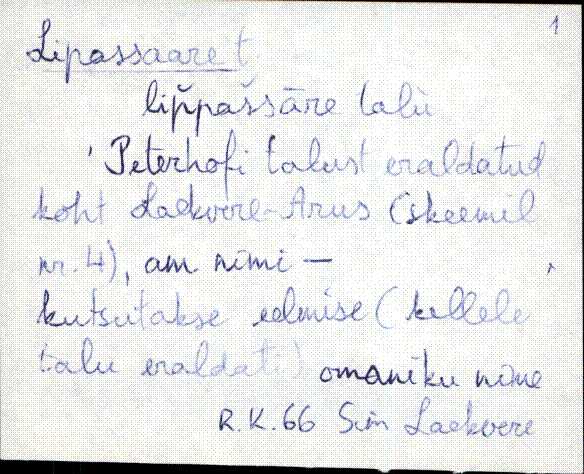 1
Lipassaare t
lip̆paššāre talù
'Peterhofi talust eraldatud
koht Laekvere-Arus (skeemil
nr. 4), am. nimi —
kutsutakse eelmise (kellele
talu eraldati) omaniku nime
R.K. 66 Sim Laekvere